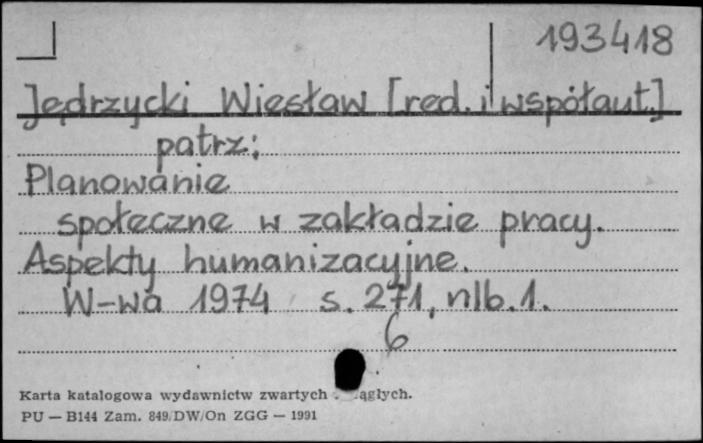 193418
Jędrzycki Wiesław [red. i współaut.]
patrz:
Planowanie
społeczne w zakładzie pracy.
Aspekty humanizacyjne.
W-wa 1974 s. 271, nlb. 1.
6
Karta katalogowa wydawnictw zwartych ągłych.
PU — B144 Zam. 849/DW/On ZGG — 1991